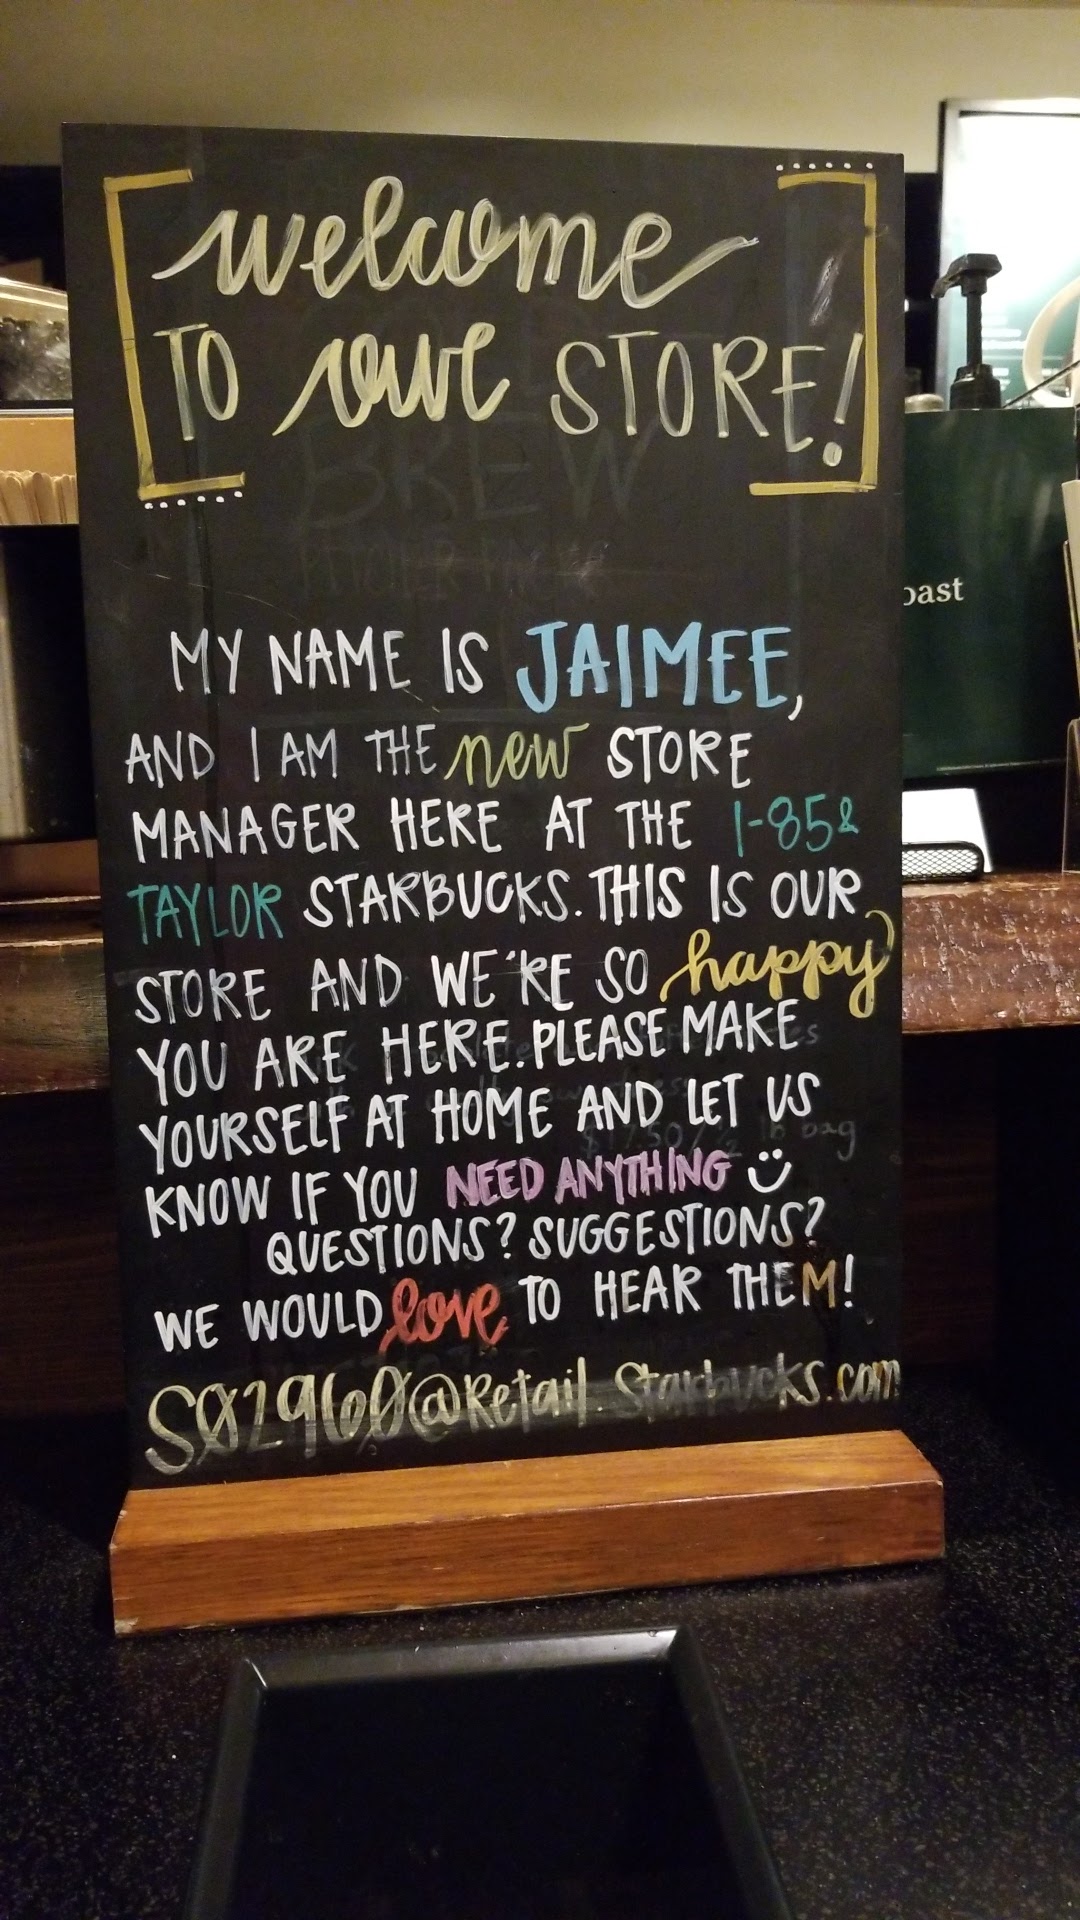 welcome
TO our STORE!
BREW
PITCHER PACK
MY NAME IS JAIMEE,
AND I AM THE new STORE
MANAGER HERE AT THE I-85 &
TAYLOR STARBUCKS. THIS IS OUR
STORE AND WE'RE SO happy
YOU ARE HERE. PLEASE MAKE
YOURSELF AT HOME AND LET US
KNOW IF YOU NEED ANYTHING
QUESTIONS? SUGGESTIONS?
WE WOULD love TO HEAR THEM!
S02960@Retail.Starbucks.com
oast